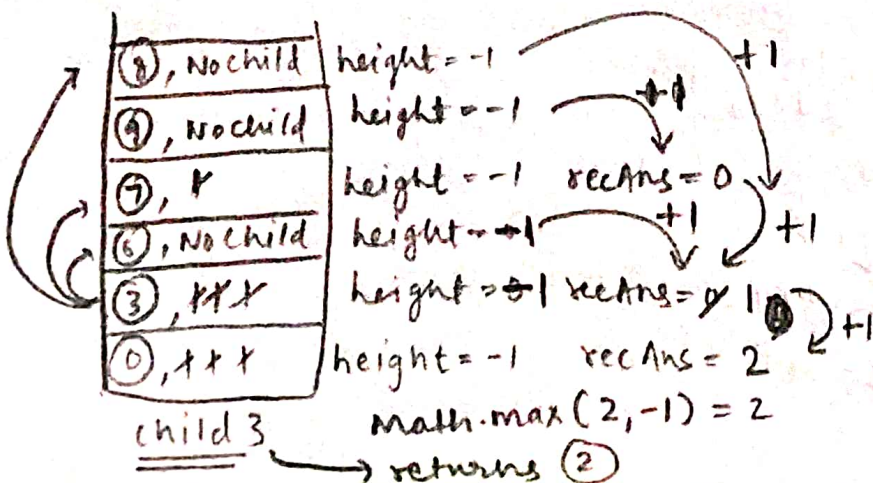 ⑧, Nochild height = -1 +1
⑨, Nochild height = -1
⑦, height = -1 recAns = 0
⑥, Nochild height = -1 +1 +1
③, height = -1 recAns = 0 1 +1
⓪, height = -1 recAns = 2
Math.max(2, -1) = 2
child 3 → returns ②